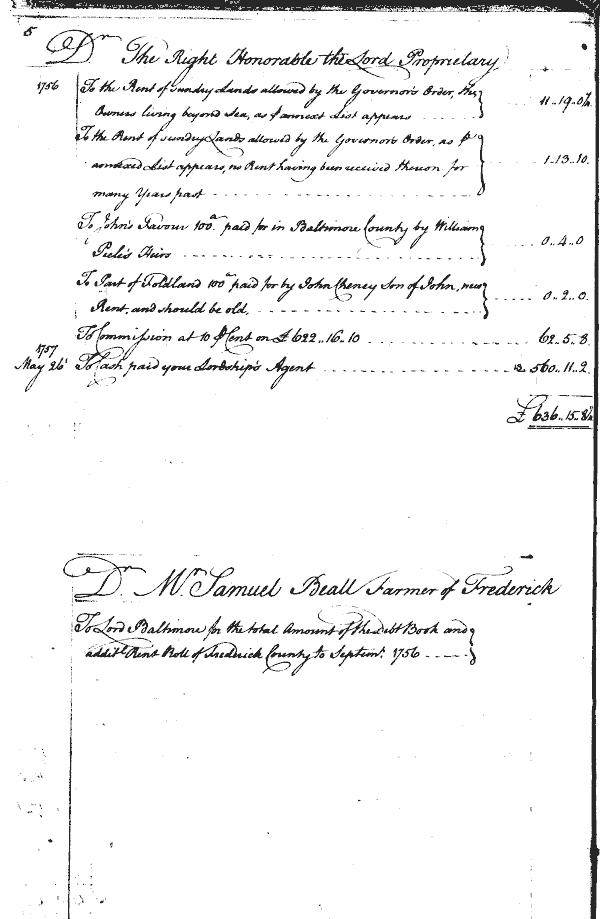 5
Dr. The Right Honorable the Lord Proprietary
1756 To the Rent of Sundry Lands allowed by the Governor's Order, the
Owners living beyond Sea, as ℙ annext List appears 11..19..0½
To the Rent of sundry Lands allowed by the Governor's Order, as ℙ
annexed List appears, no Rent having been received thereon for
many Years past 1..13..10.
To John's Favour 100a. paid for in Baltimore County by William
Peele's Heirs 0..4..0
To Part of Foldland 100a paid for by John Cheney Son of John, new
Rent, and should be old, 0..2..0.
To Commission at 10 ℙ Cent on £622..16..10 62..5..8.
1757
May 26. To Cash paid your Lordship's Agent 560..11..2.
£636..15..8½
Dr. Mr. Samuel Beall Farmer of Frederick
To Lord Baltimore for the total Amount of the Debt Book and
addit.l Rent Roll of Frederick County to Septemr. 1756